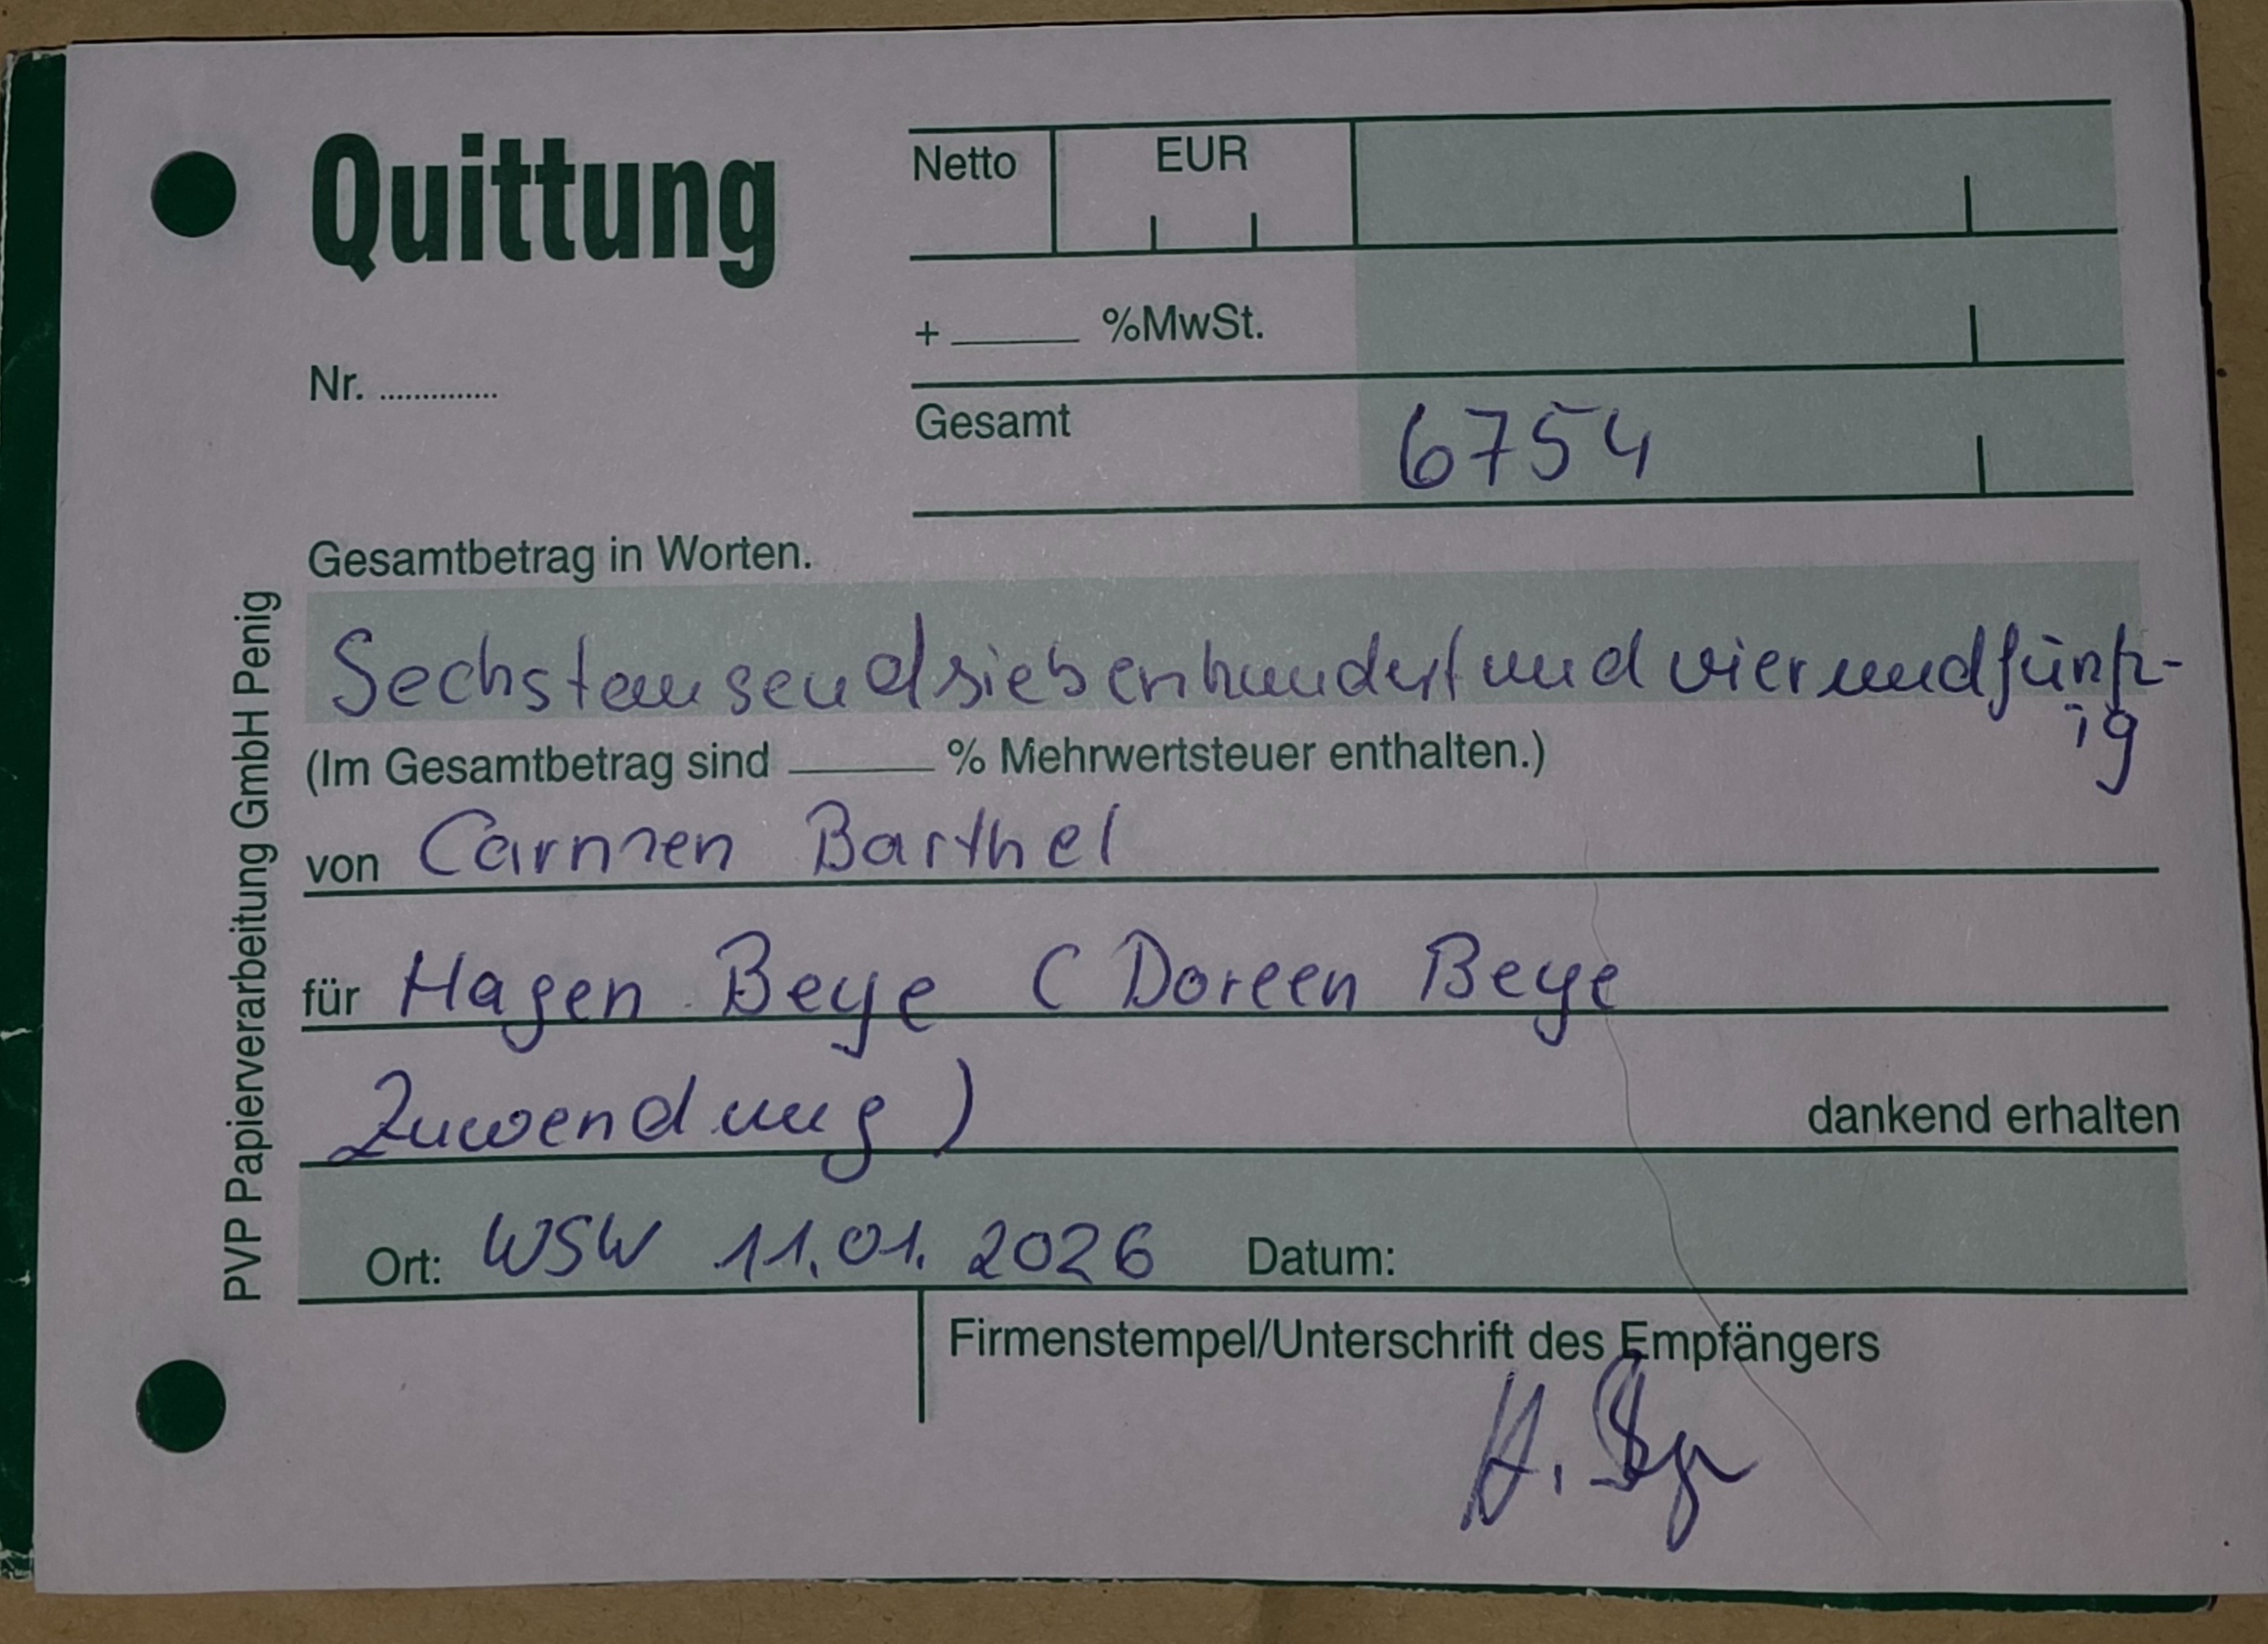 Quittung
Netto EUR
+ ______ %MwSt.
Nr. ..............
Gesamt 6754
Gesamtbetrag in Worten.
Sechstausendsiebenhundertundvierundfünfz-
ig
(Im Gesamtbetrag sind ______ % Mehrwertsteuer enthalten.)
von Carmen Barthel
für Hagen Beye ( Doreen Beye
Zuwendung )
dankend erhalten
Ort: WSW 11.01.2026 Datum:
Firmenstempel/Unterschrift des Empfängers
PVP Papierverarbeitung GmbH Penig